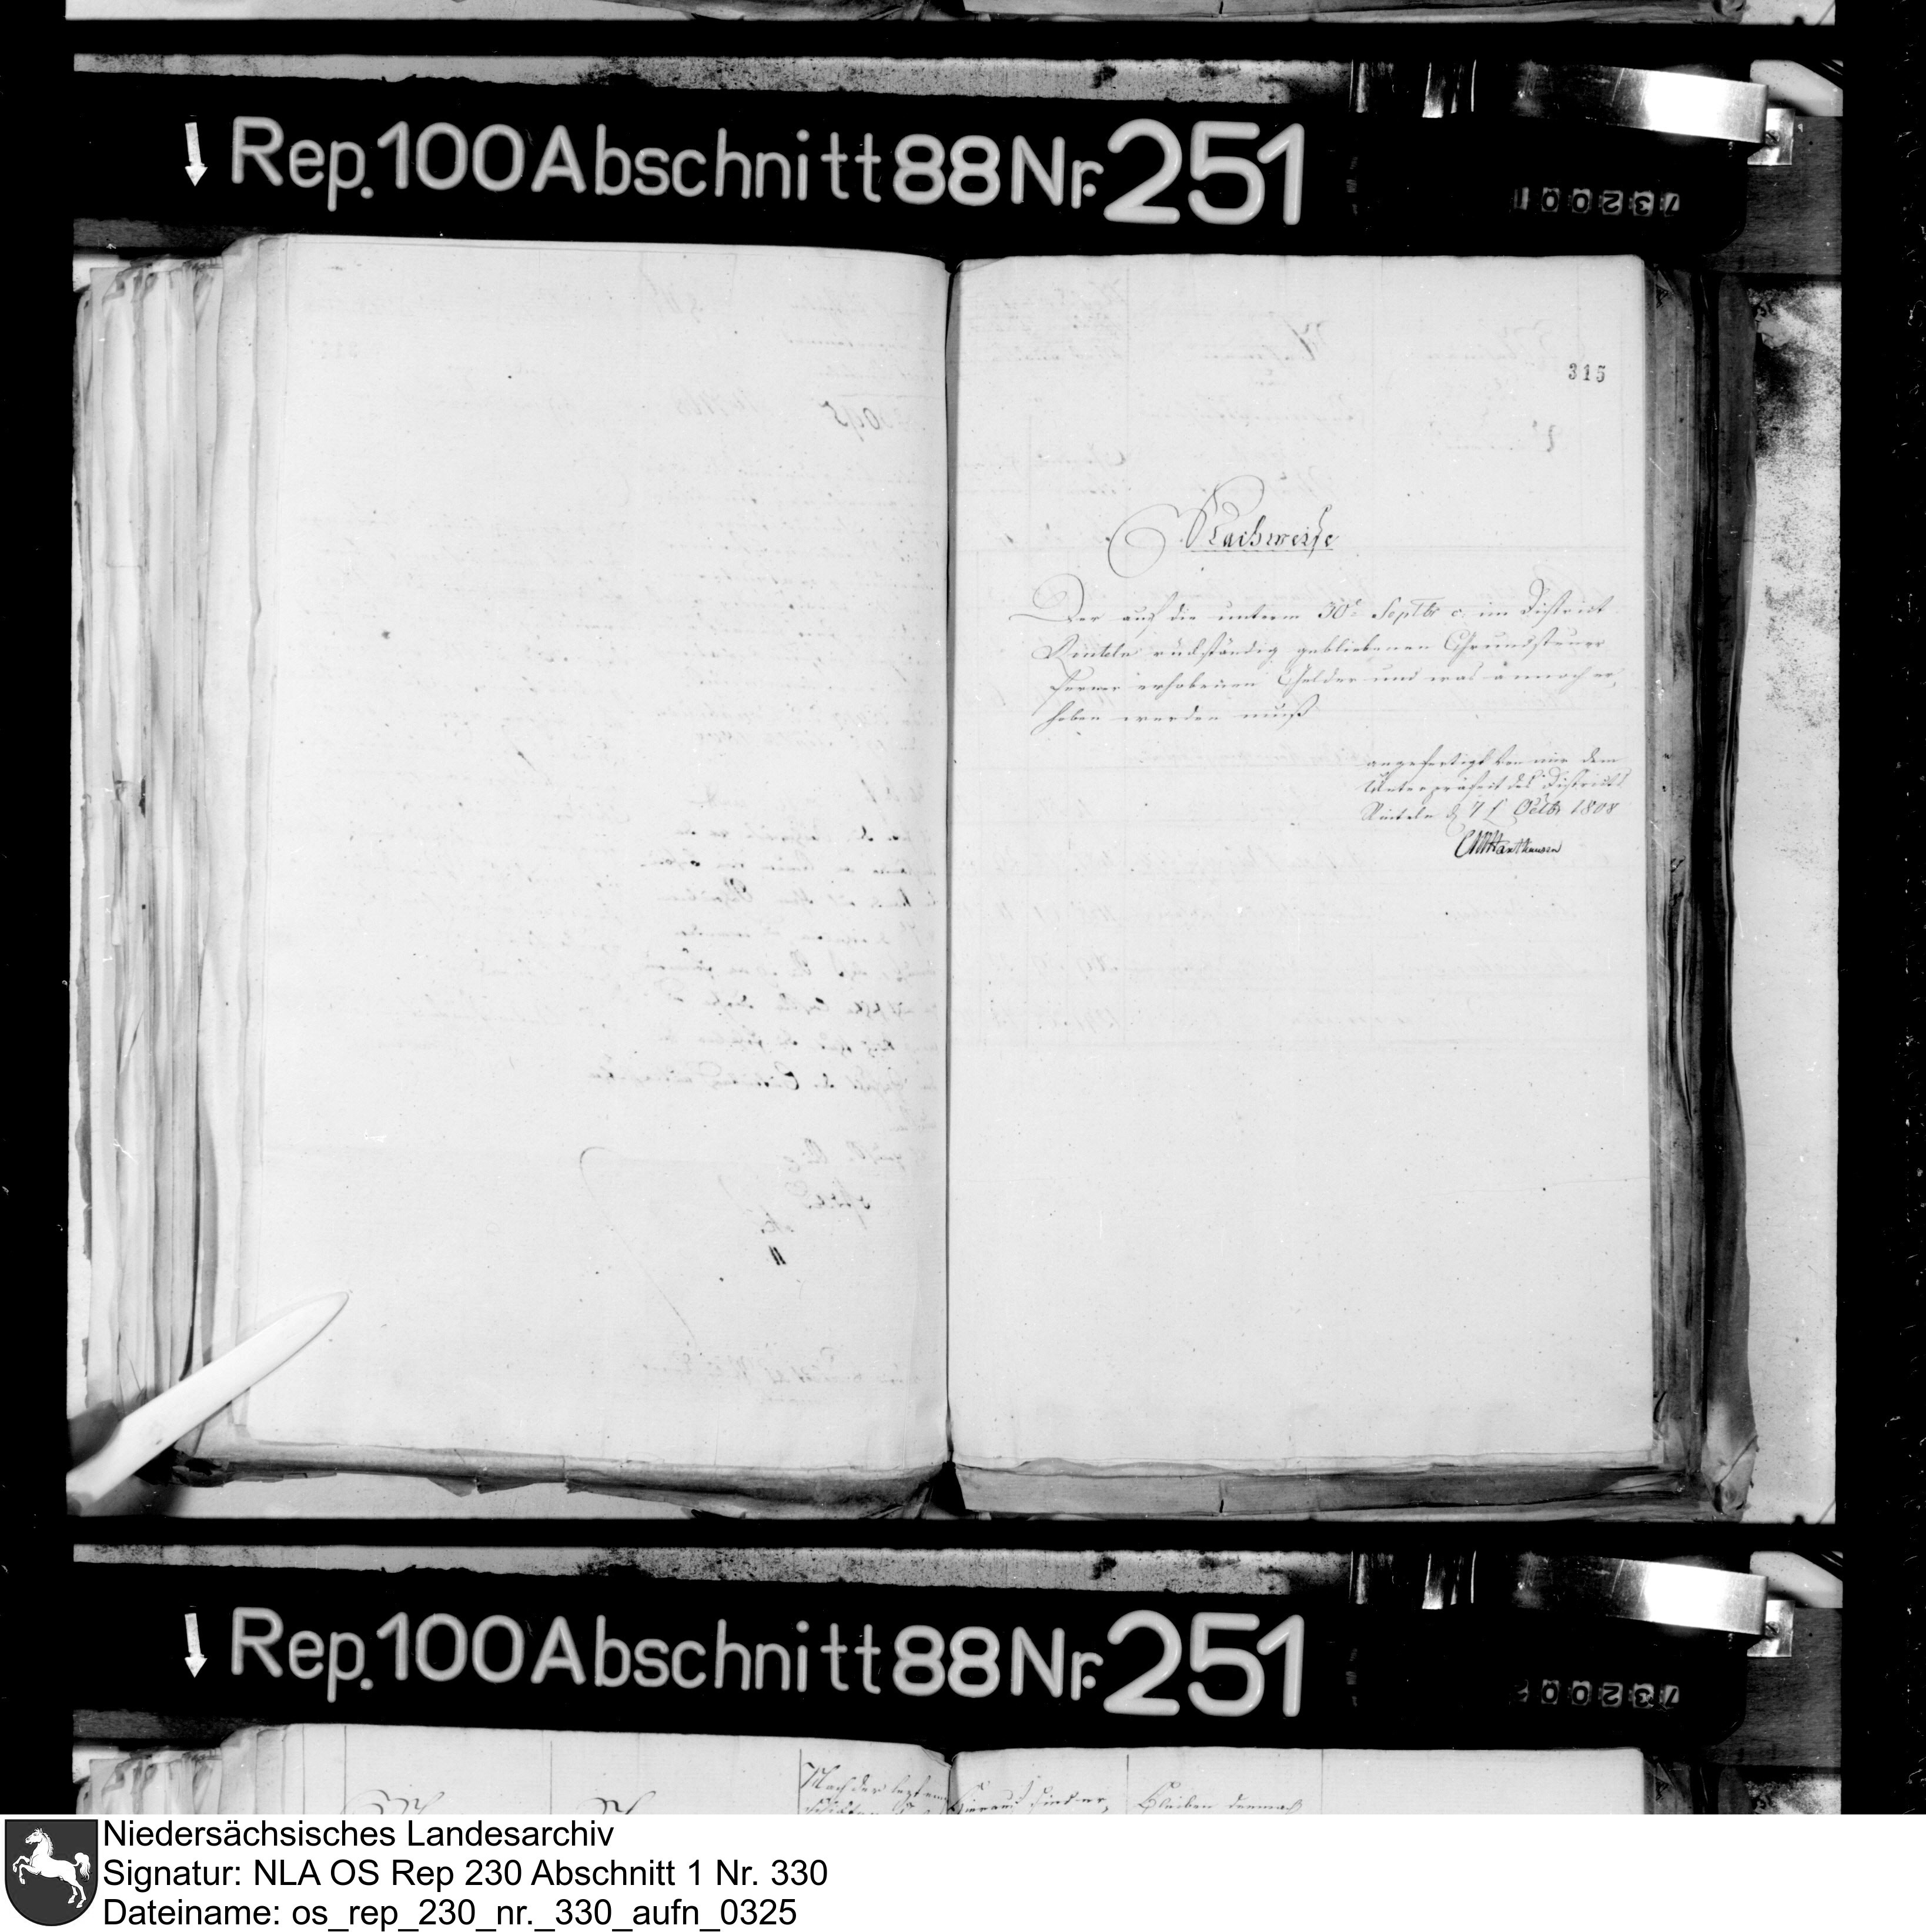 Rep. 100 Abschnitt 88 Nr. 251
315
Nachweise
Der auf die unterm 30t Septbr c. im District
Rinteln rückständig gebliebenen Grundsteuer
ferner erhobenen Gelder und was annoch er,
hoben werden muß
angefertigt von mir dem
Unterpräfect des Districts
Rinteln d Octbr 1808
Rep. 100 Abschnitt 88 Nr. 251
Nach der letztern
Hieraus sind er,
Bleiben demnach
Niedersächsisches Landesarchiv
Signatur: NLA OS Rep 230 Abschnitt 1 Nr. 330
Dateiname: os_rep_230_nr._330_aufn_0325